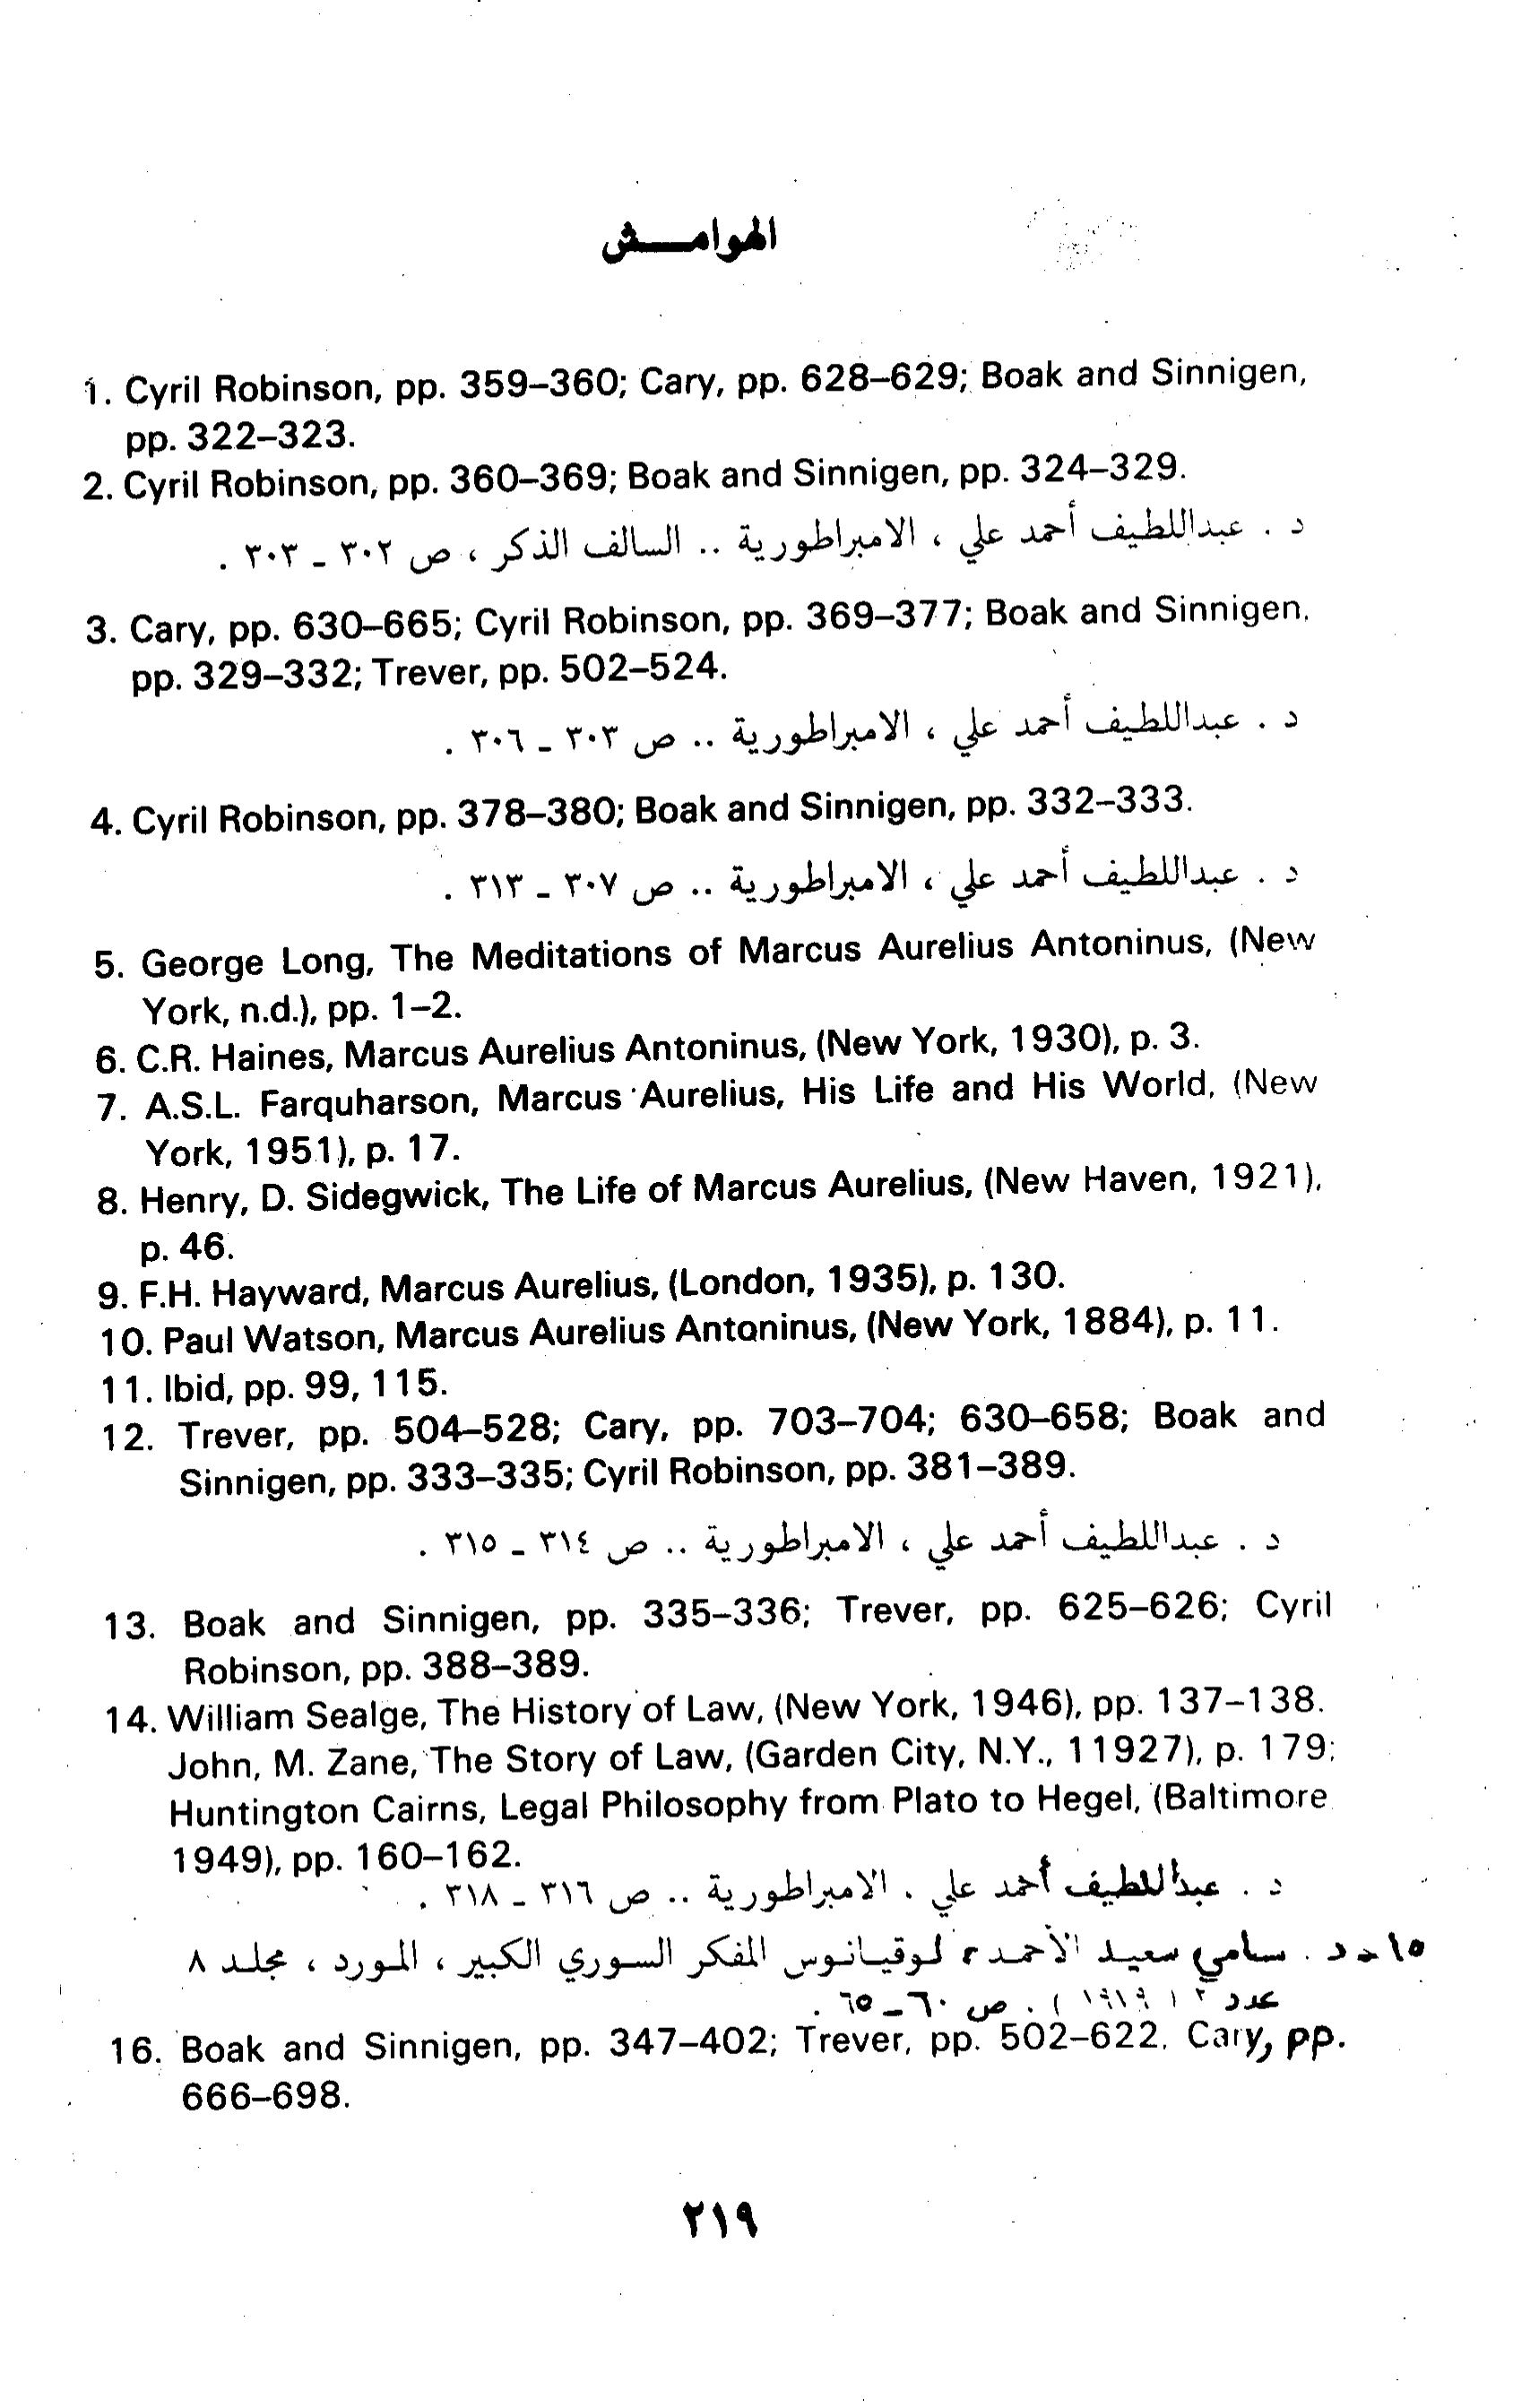 الهوامـــش
1. Cyril Robinson, pp. 359–360; Cary, pp. 628–629; Boak and Sinnigen,
pp. 322–323.
2. Cyril Robinson, pp. 360–369; Boak and Sinnigen, pp. 324–329.
د . عبداللطيف أحمد علي ، الامبراطورية .. السالف الذكر ، ص ٣٠٢ ـ ٣٠٣ .
3. Cary, pp. 630–665; Cyril Robinson, pp. 369–377; Boak and Sinnigen,
pp. 329–332; Trever, pp. 502–524.
د . عبداللطيف أحمد علي ، الامبراطورية .. ص ٣٠٣ ـ ٣٠٦ .
4. Cyril Robinson, pp. 378–380; Boak and Sinnigen, pp. 332–333.
د . عبداللطيف أحمد علي ، الامبراطورية .. ص ٣٠٧ ـ ٣١٣ .
5. George Long, The Meditations of Marcus Aurelius Antoninus, (New
York, n.d.), pp. 1–2.
6. C.R. Haines, Marcus Aurelius Antoninus, (New York, 1930), p. 3.
7. A.S.L. Farquharson, Marcus Aurelius, His Life and His World, (New
York, 1951), p. 17.
8. Henry, D. Sidegwick, The Life of Marcus Aurelius, (New Haven, 1921),
p. 46.
9. F.H. Hayward, Marcus Aurelius, (London, 1935), p. 130.
10. Paul Watson, Marcus Aurelius Antoninus, (New York, 1884), p. 11.
11. Ibid, pp. 99, 115.
12. Trever, pp. 504–528; Cary, pp. 703–704; 630–658; Boak and
Sinnigen, pp. 333–335; Cyril Robinson, pp. 381–389.
د . عبداللطيف أحمد علي ، الامبراطورية .. ص ٣١٤ ـ ٣١٥ .
13. Boak and Sinnigen, pp. 335–336; Trever, pp. 625–626; Cyril
Robinson, pp. 388–389.
14. William Sealge, The History of Law, (New York, 1946), pp. 137–138.
John, M. Zane, The Story of Law, (Garden City, N.Y., 11927), p. 179;
Huntington Cairns, Legal Philosophy from Plato to Hegel, (Baltimore
1949), pp. 160–162.
د . عبداللطيف أحمد علي . الامبراطورية .. ص ٣١٦ ـ ٣١٨ .
١٥ ـ د . سامي سعيد الأحمد ، لوقيانوس المفكر السوري الكبير ، المورد ، مجلد ٨
عدد ٢ ) . ص ٦٠ ـ ٦٥ .
16. Boak and Sinnigen, pp. 347–402; Trever, pp. 502–622. Cary, pp.
666–698.
٢١٩